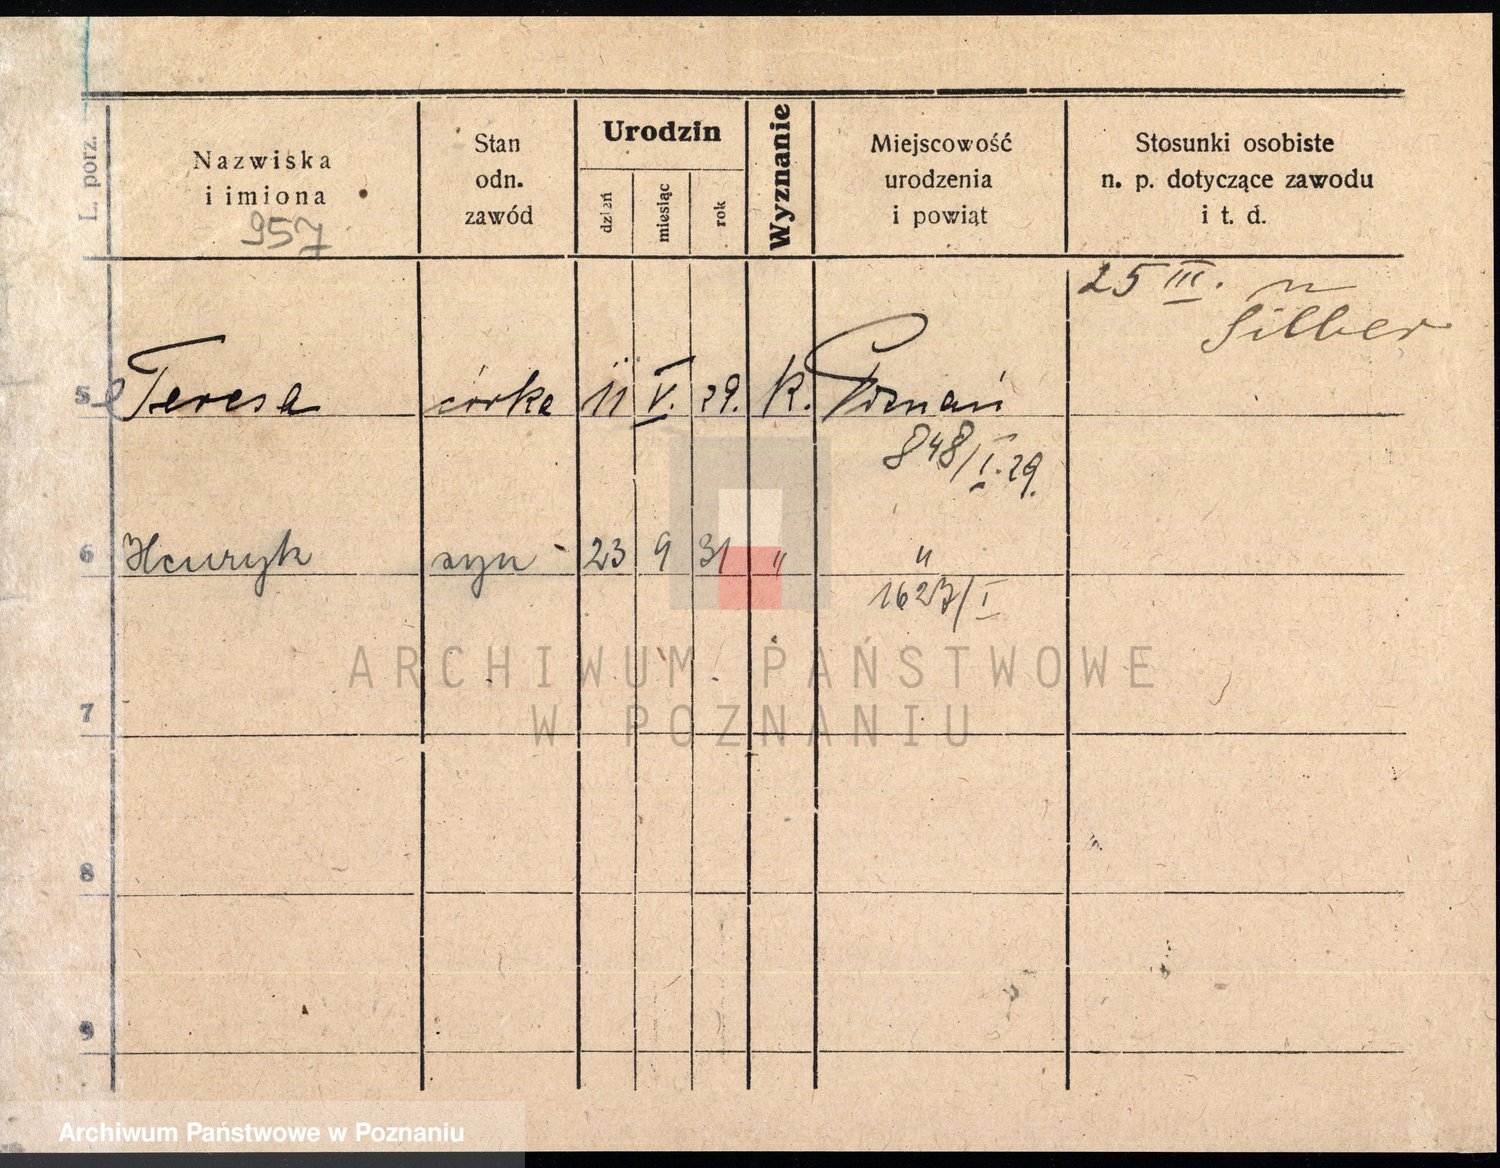 L. porz.
Nazwiska
i imiona
957
Stan
odn.
zawód
Urodzin
dzień
miesiąc
rok
Wyznanie
Miejscowość
urodzenia
i powiąt
Stosunki osobiste
n. p. dotyczące zawodu
i t. d.
25 III.
Silber
5 Teresa córka 11 V. 29. K. Poznań
848/I.29.
6 Henryk syn 23 9 31 " "
1627/I
7
8
9
ARCHIWUM PAŃSTWOWE
W POZNANIU
Archiwum Państwowe w Poznaniu